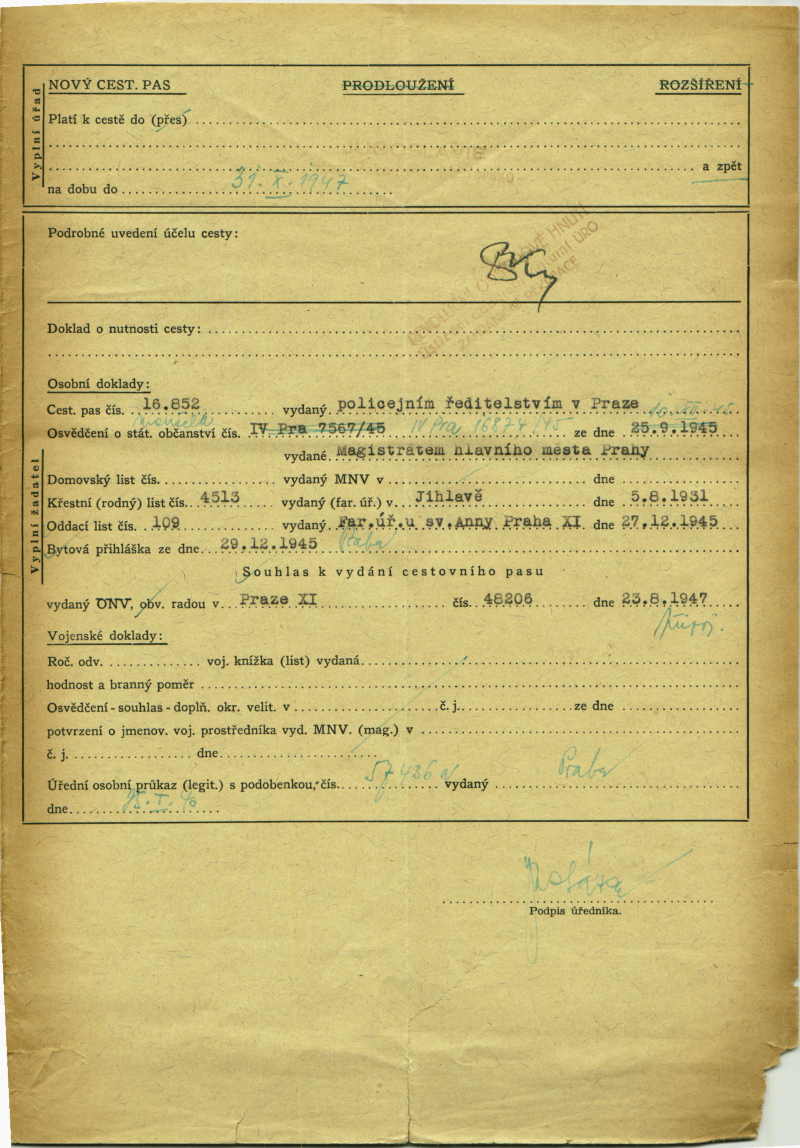 NOVÝ CEST. PAS PRODLOUŽENÍ ROZŠÍŘENÍ
Vyplní úřad
Platí k cestě do (přes)
a zpět
na dobu do 31. X. 1947
Podrobné uvedení účelu cesty:
Doklad o nutnosti cesty:
Osobní doklady:
Cest. pas čís. 16.852 vydaný policejním ředitelstvím v Praze
manželky
Osvědčení o stát. občanství čís. IV Pra 7567/45 IV Pra 16874/45 ze dne 25.9.1945
vydané Magistrátem hlavního města Prahy
Vyplní žadatel
Domovský list čís. vydaný MNV v dne
Křestní (rodný) list čís. 4513 vydaný (far. úř.) v Jihlavě dne 5.8.1931
Oddací list čís. 109 vydaný Far.úř.u sv.Anny Praha XI dne 27.12.1945
Bytová přihláška ze dne 29.12.1945 Praha
Souhlas k vydání cestovního pasu
vydaný ONV, obv. radou v Praze XI čís. 48206 dne 23.8.1947
Vojenské doklady:
Roč. odv. voj. knížka (list) vydaná
hodnost a branný poměr
Osvědčení - souhlas - doplň. okr. velit. v č. j. ze dne
potvrzení o jmenov. voj. prostředníka vyd. MNV. (mag.) v
č. j. dne
Úřední osobní průkaz (legit.) s podobenkou, čís. vydaný Praha
dne
Podpis úředníka.